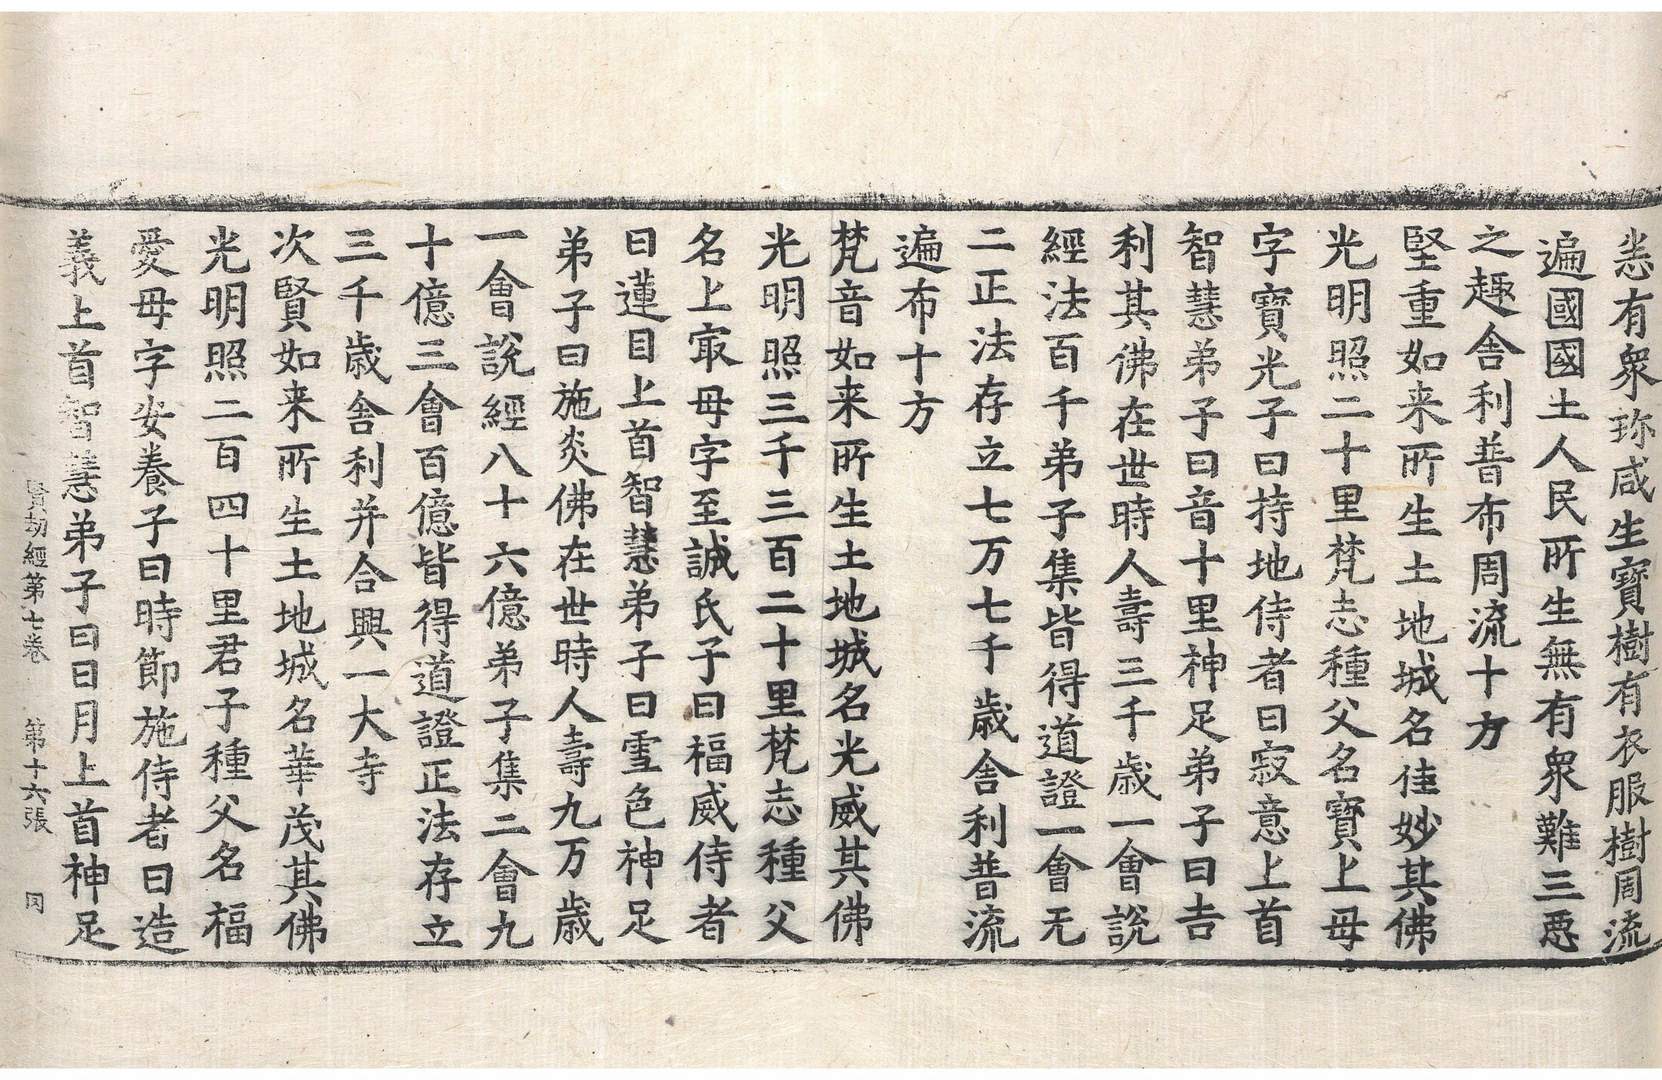 恙有衆珎咸生寳樹有衣服樹周流
遍國國土人民所生無有衆難三惡
之趣舍利普布周流十方
堅重如来所生土地城名佳妙其佛
光明照二十里梵志種父名寳上母
字寳光子曰持地侍者曰寂意上首
智慧弟子曰音十里神足弟子曰吉
利其佛在世時人壽三千歲一會說
經法百千弟子集皆得道證一會无
二正法存立七万七千歲舍利普流
遍布十方
梵音如来所生土地城名光威其佛
光明照三千三百二十里梵志種父
名上㝡母字至誠氏子曰福威侍者
曰蓮目上首智慧弟子曰雪色神足
弟子曰施炎佛在世時人壽九万歲
一會說經八十六億弟子集二會九
十億三會百億皆得道證正法存立
三千歲舍利并合興一大寺
次賢如来所生土地城名華茂其佛
光明照二百四十里君子種父名福
愛母字安養子曰時節施侍者曰造
義上首智慧弟子曰日月上首神足
賢劫經第七卷 第十六張 同